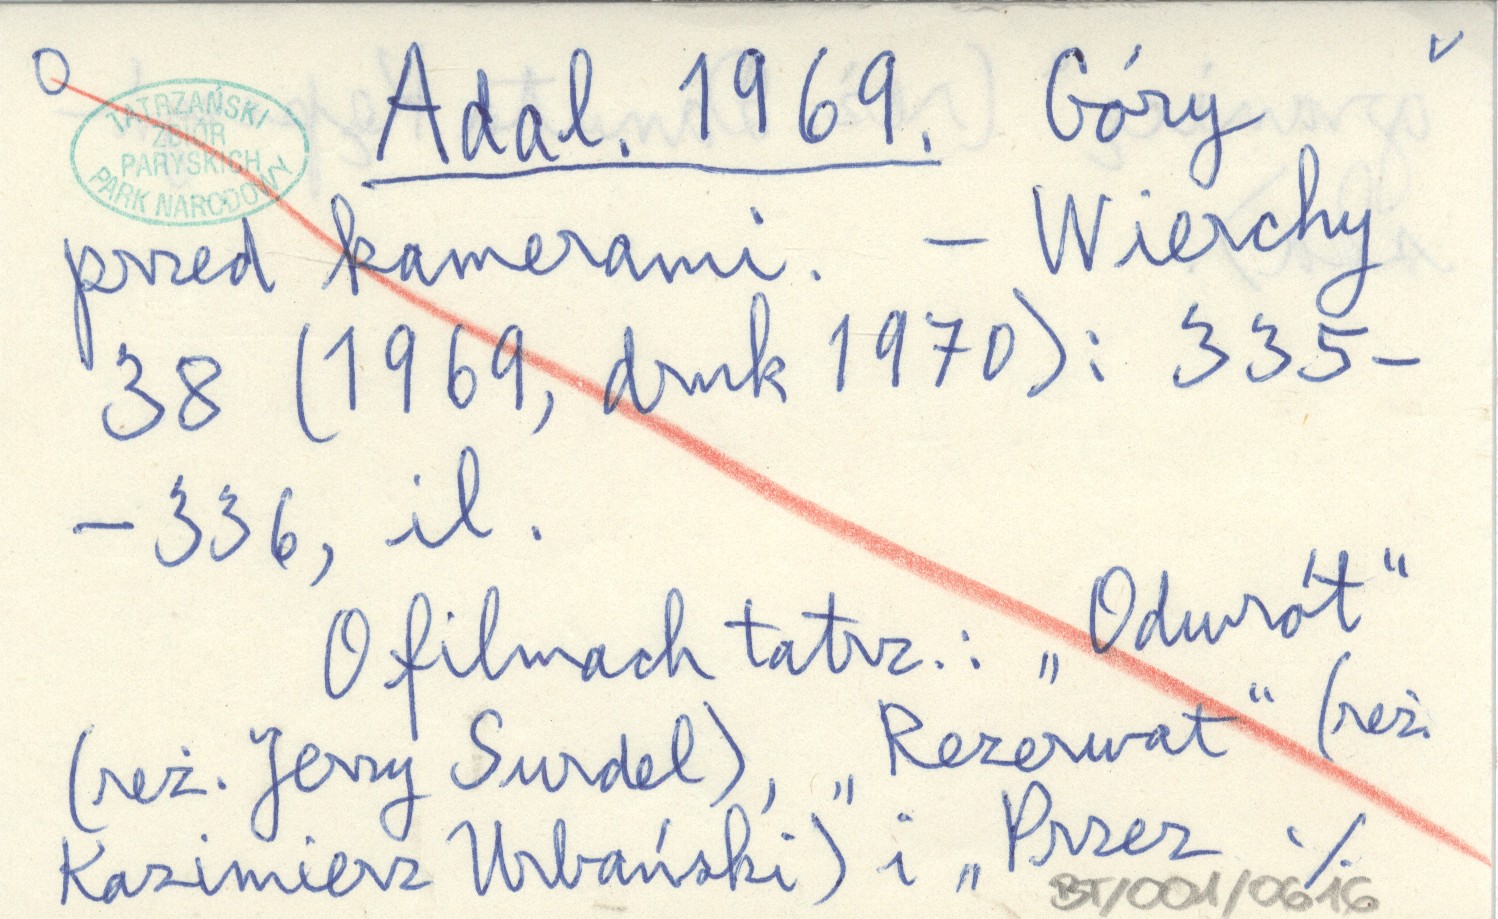 O Adal. 1969. Góry v
TATRZAŃSKI
ZBIÓR
PARYSKICH
PARK NARODOWY
przed kamerami. – Wierchy
38 (1969, druk 1970): 335–
–336, il.
O filmach tatrz.: „Odwrót“
(reż. Jerzy Surdel), „Rezerwat“ (reż.
Kazimierz Urbański) i „Przez ./.
BT/001/0616